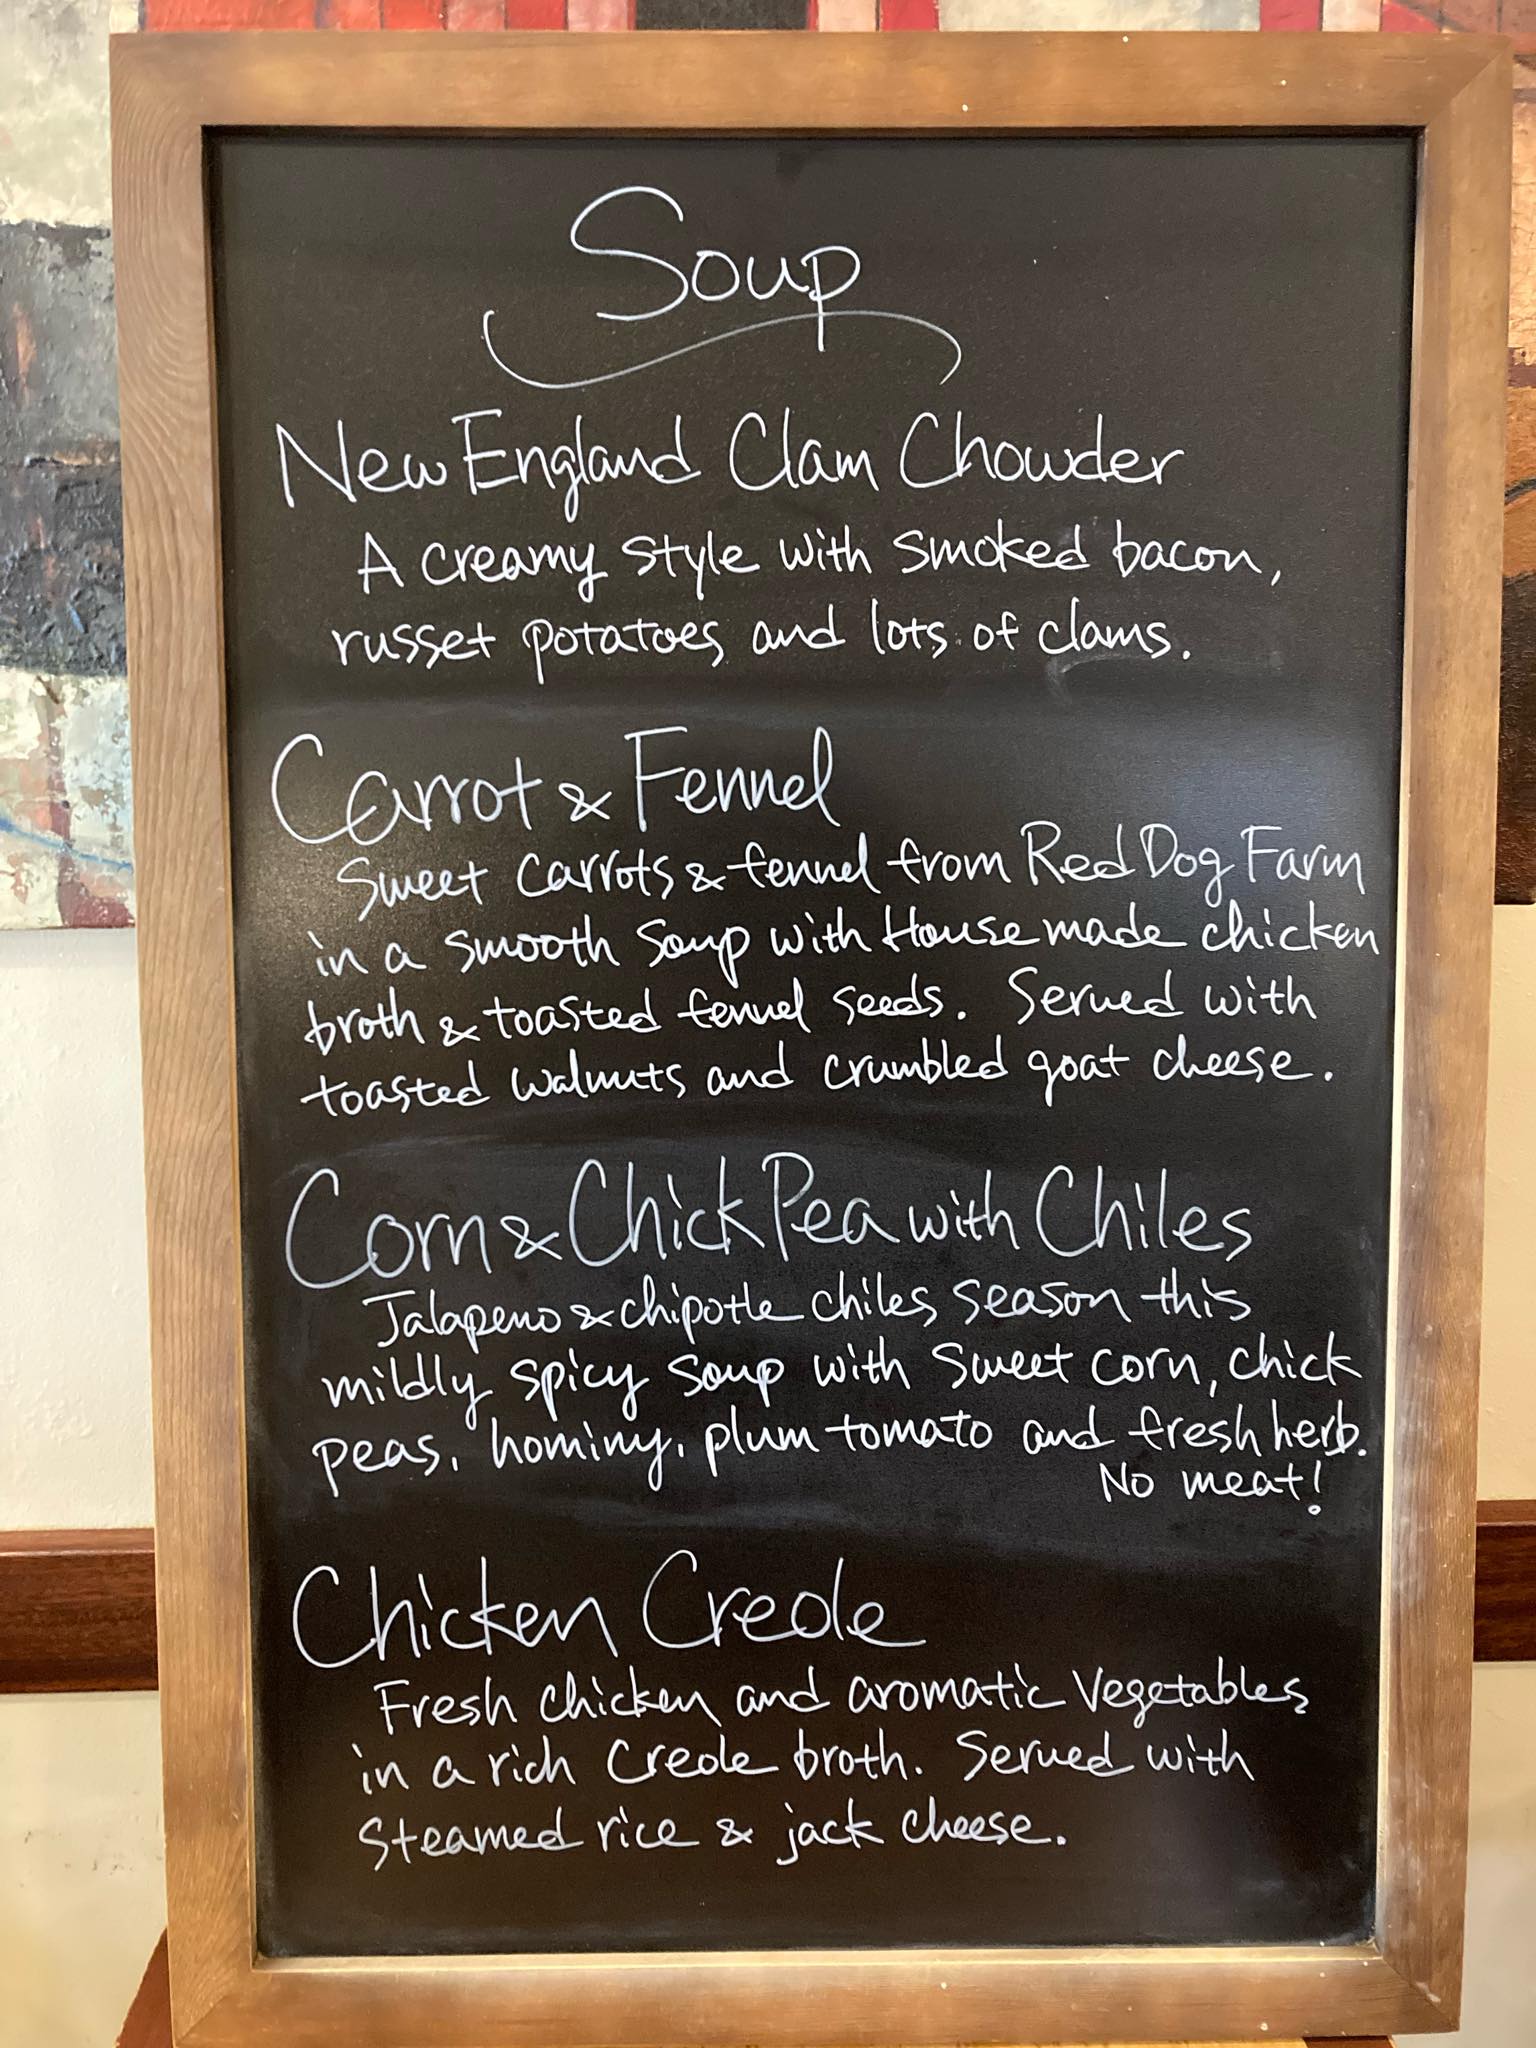 Soup
New England Clam Chowder
A creamy style with smoked bacon,
russet potatoes and lots of clams.
Carrot & Fennel
Sweet carrots & fennel from Red Dog Farm
in a smooth soup with House made chicken
broth & toasted fennel seeds. Served with
toasted walnuts and crumbled goat cheese.
Corn & Chick Pea with Chiles
Jalapeno & chipotle chiles season this
mildly spicy soup with sweet corn, chick
peas, hominy, plum tomato and fresh herb.
No meat!
Chicken Creole
Fresh chicken and aromatic vegetables
in a rich Creole broth. Served with
steamed rice & jack cheese.